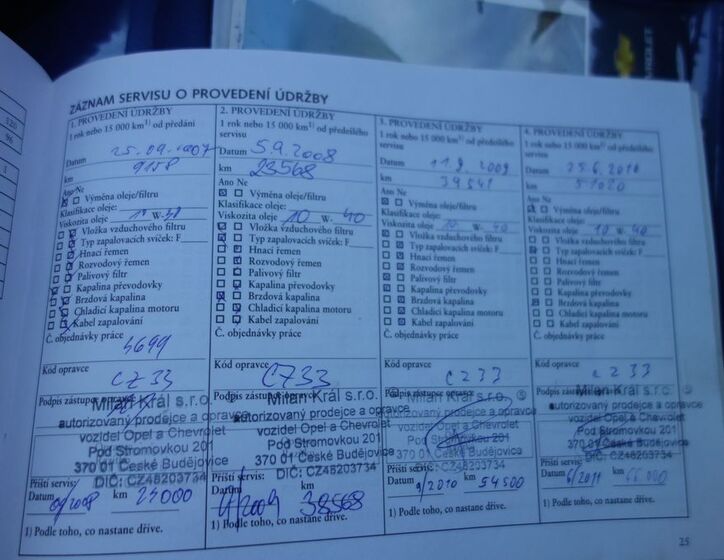 ZÁZNAM SERVISU O PROVEDENÍ ÚDRŽBY
1. PROVEDENÍ ÚDRŽBY
1 rok nebo 15 000 km1) od předání
Datum 25.09.2007
km 9158
Ano Ne
Výměna oleje/filtru
Klasifikace oleje:
Viskozita oleje: W-
Vložka vzduchového filtru
Typ zapalovacích svíček: F
Hnací řemen
Rozvodový řemen
Palivový filtr
Kapalina převodovky
Brzdová kapalina
Chladicí kapalina motoru
Kabel zapalování
Č. objednávky práce
Kód opravce
CZ33
Podpis zástupce
Milan Král s.r.o.
autorizovaný prodejce a opravce
vozidel Opel a Chevrolet
Pod Stromovkou 201
370 01 České Budějovice
DIČ: CZ48203734
Příští servis:
Datum km
23000
1) Podle toho, co nastane dříve.
2. PROVEDENÍ ÚDRŽBY
1 rok nebo 15 000 km1) od předešlého
servisu
Datum 5.9.2008
km 23568
Ano Ne
Výměna oleje/filtru
Klasifikace oleje:
Viskozita oleje: 10 W- 40
Vložka vzduchového filtru
Typ zapalovacích svíček: F
Hnací řemen
Rozvodový řemen
Palivový filtr
Kapalina převodovky
Brzdová kapalina
Chladicí kapalina motoru
Kabel zapalování
Č. objednávky práce
Kód opravce
CZ33
Podpis zástupce
Milan Král s.r.o.
autorizovaný prodejce a opravce
vozidel Opel a Chevrolet
Pod Stromovkou 201
370 01 České Budějovice
DIČ: CZ48203734
Příští servis:
Datum km
38568
1) Podle toho, co nastane dříve.
3. PROVEDENÍ ÚDRŽBY
1 rok nebo 15 000 km1) od předešlého
servisu
Datum 11.9.2009
km 39541
Ano Ne
Výměna oleje/filtru
Klasifikace oleje:
Viskozita oleje: 10 W- 40
Vložka vzduchového filtru
Typ zapalovacích svíček: F
Hnací řemen
Rozvodový řemen
Palivový filtr
Kapalina převodovky
Brzdová kapalina
Chladicí kapalina motoru
Kabel zapalování
Č. objednávky práce
Kód opravce
CZ33
Podpis zástupce
Milan Král s.r.o.
autorizovaný prodejce a opravce
vozidel Opel a Chevrolet
Pod Stromovkou 201
370 01 České Budějovice
DIČ: CZ48203734
Příští servis:
Datum 9/2010 km 54500
1) Podle toho, co nastane dříve.
4. PROVEDENÍ ÚDRŽBY
1 rok nebo 15 000 km1) od předešlého
servisu
Datum 25.6.2010
km 51020
Ano Ne
Výměna oleje/filtru
Klasifikace oleje:
Viskozita oleje: 10 W- 40
Vložka vzduchového filtru
Typ zapalovacích svíček: F
Hnací řemen
Rozvodový řemen
Palivový filtr
Kapalina převodovky
Brzdová kapalina
Chladicí kapalina motoru
Kabel zapalování
Č. objednávky práce
Kód opravce
CZ33
Podpis zástupce
Milan Král s.r.o.
autorizovaný prodejce a opravce
vozidel Opel a Chevrolet
Pod Stromovkou 201
370 01 České Budějovice
DIČ: CZ48203734
Příští servis:
Datum 6/2011 km 66000
1) Podle toho, co nastane dříve.
25